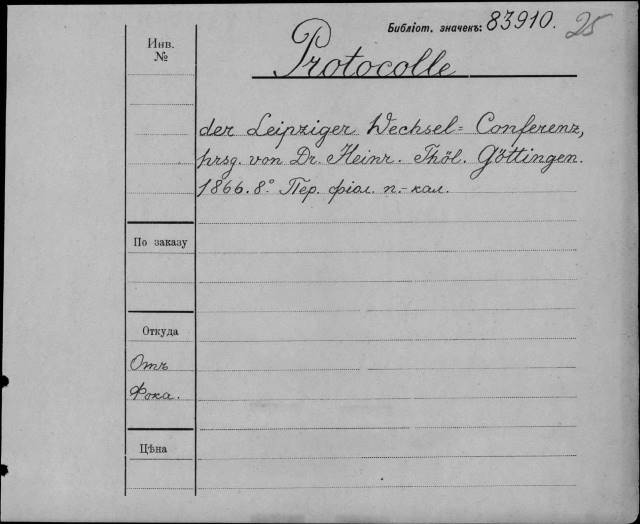 Библіот. значекъ: 83910.
25
Инв.
№
Protocolle
der Leipziger Wechsel-Conferenz,
hrsg. von Dr. Heinr. Thöl. Göttingen.
1866. 8.° Пер. фіол. п.-кал.
По заказу
Откуда
Отъ
Фока.
Цѣна